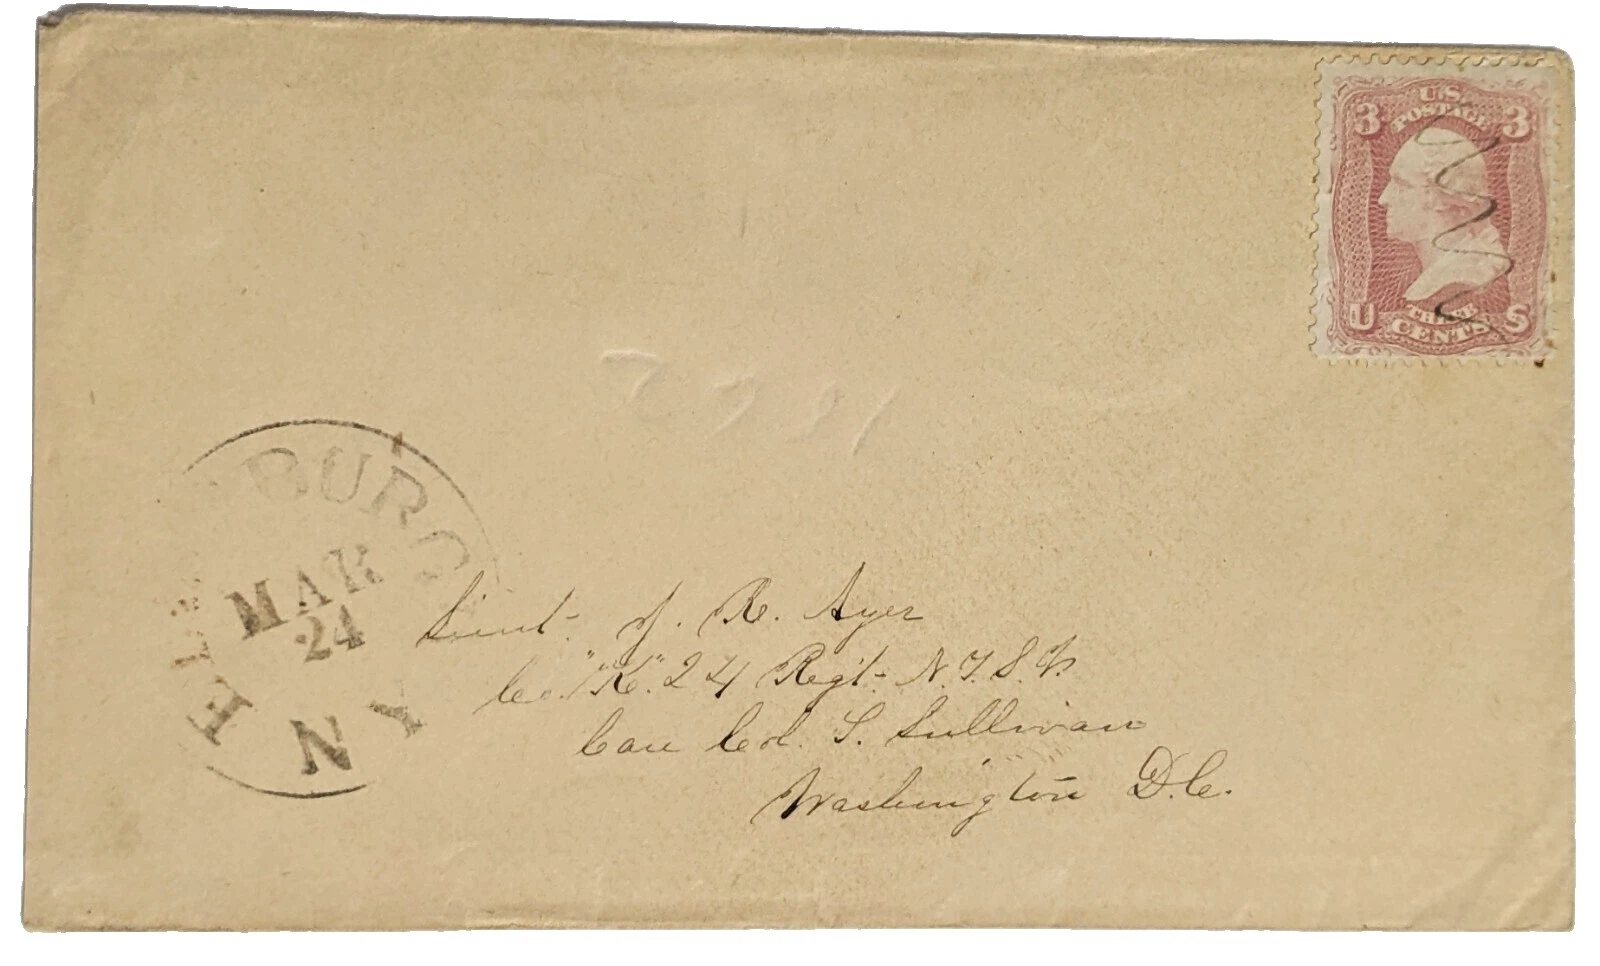 U.S.
POSTAGE
3 3
U S
THREE
CENTS
BURG
MAR
24
N Y
Lieut. J. R. Ayer
Co. "K" 24 Regt. N.Y.S.V.
Care Col. T. Sullivan
Washington D.C.